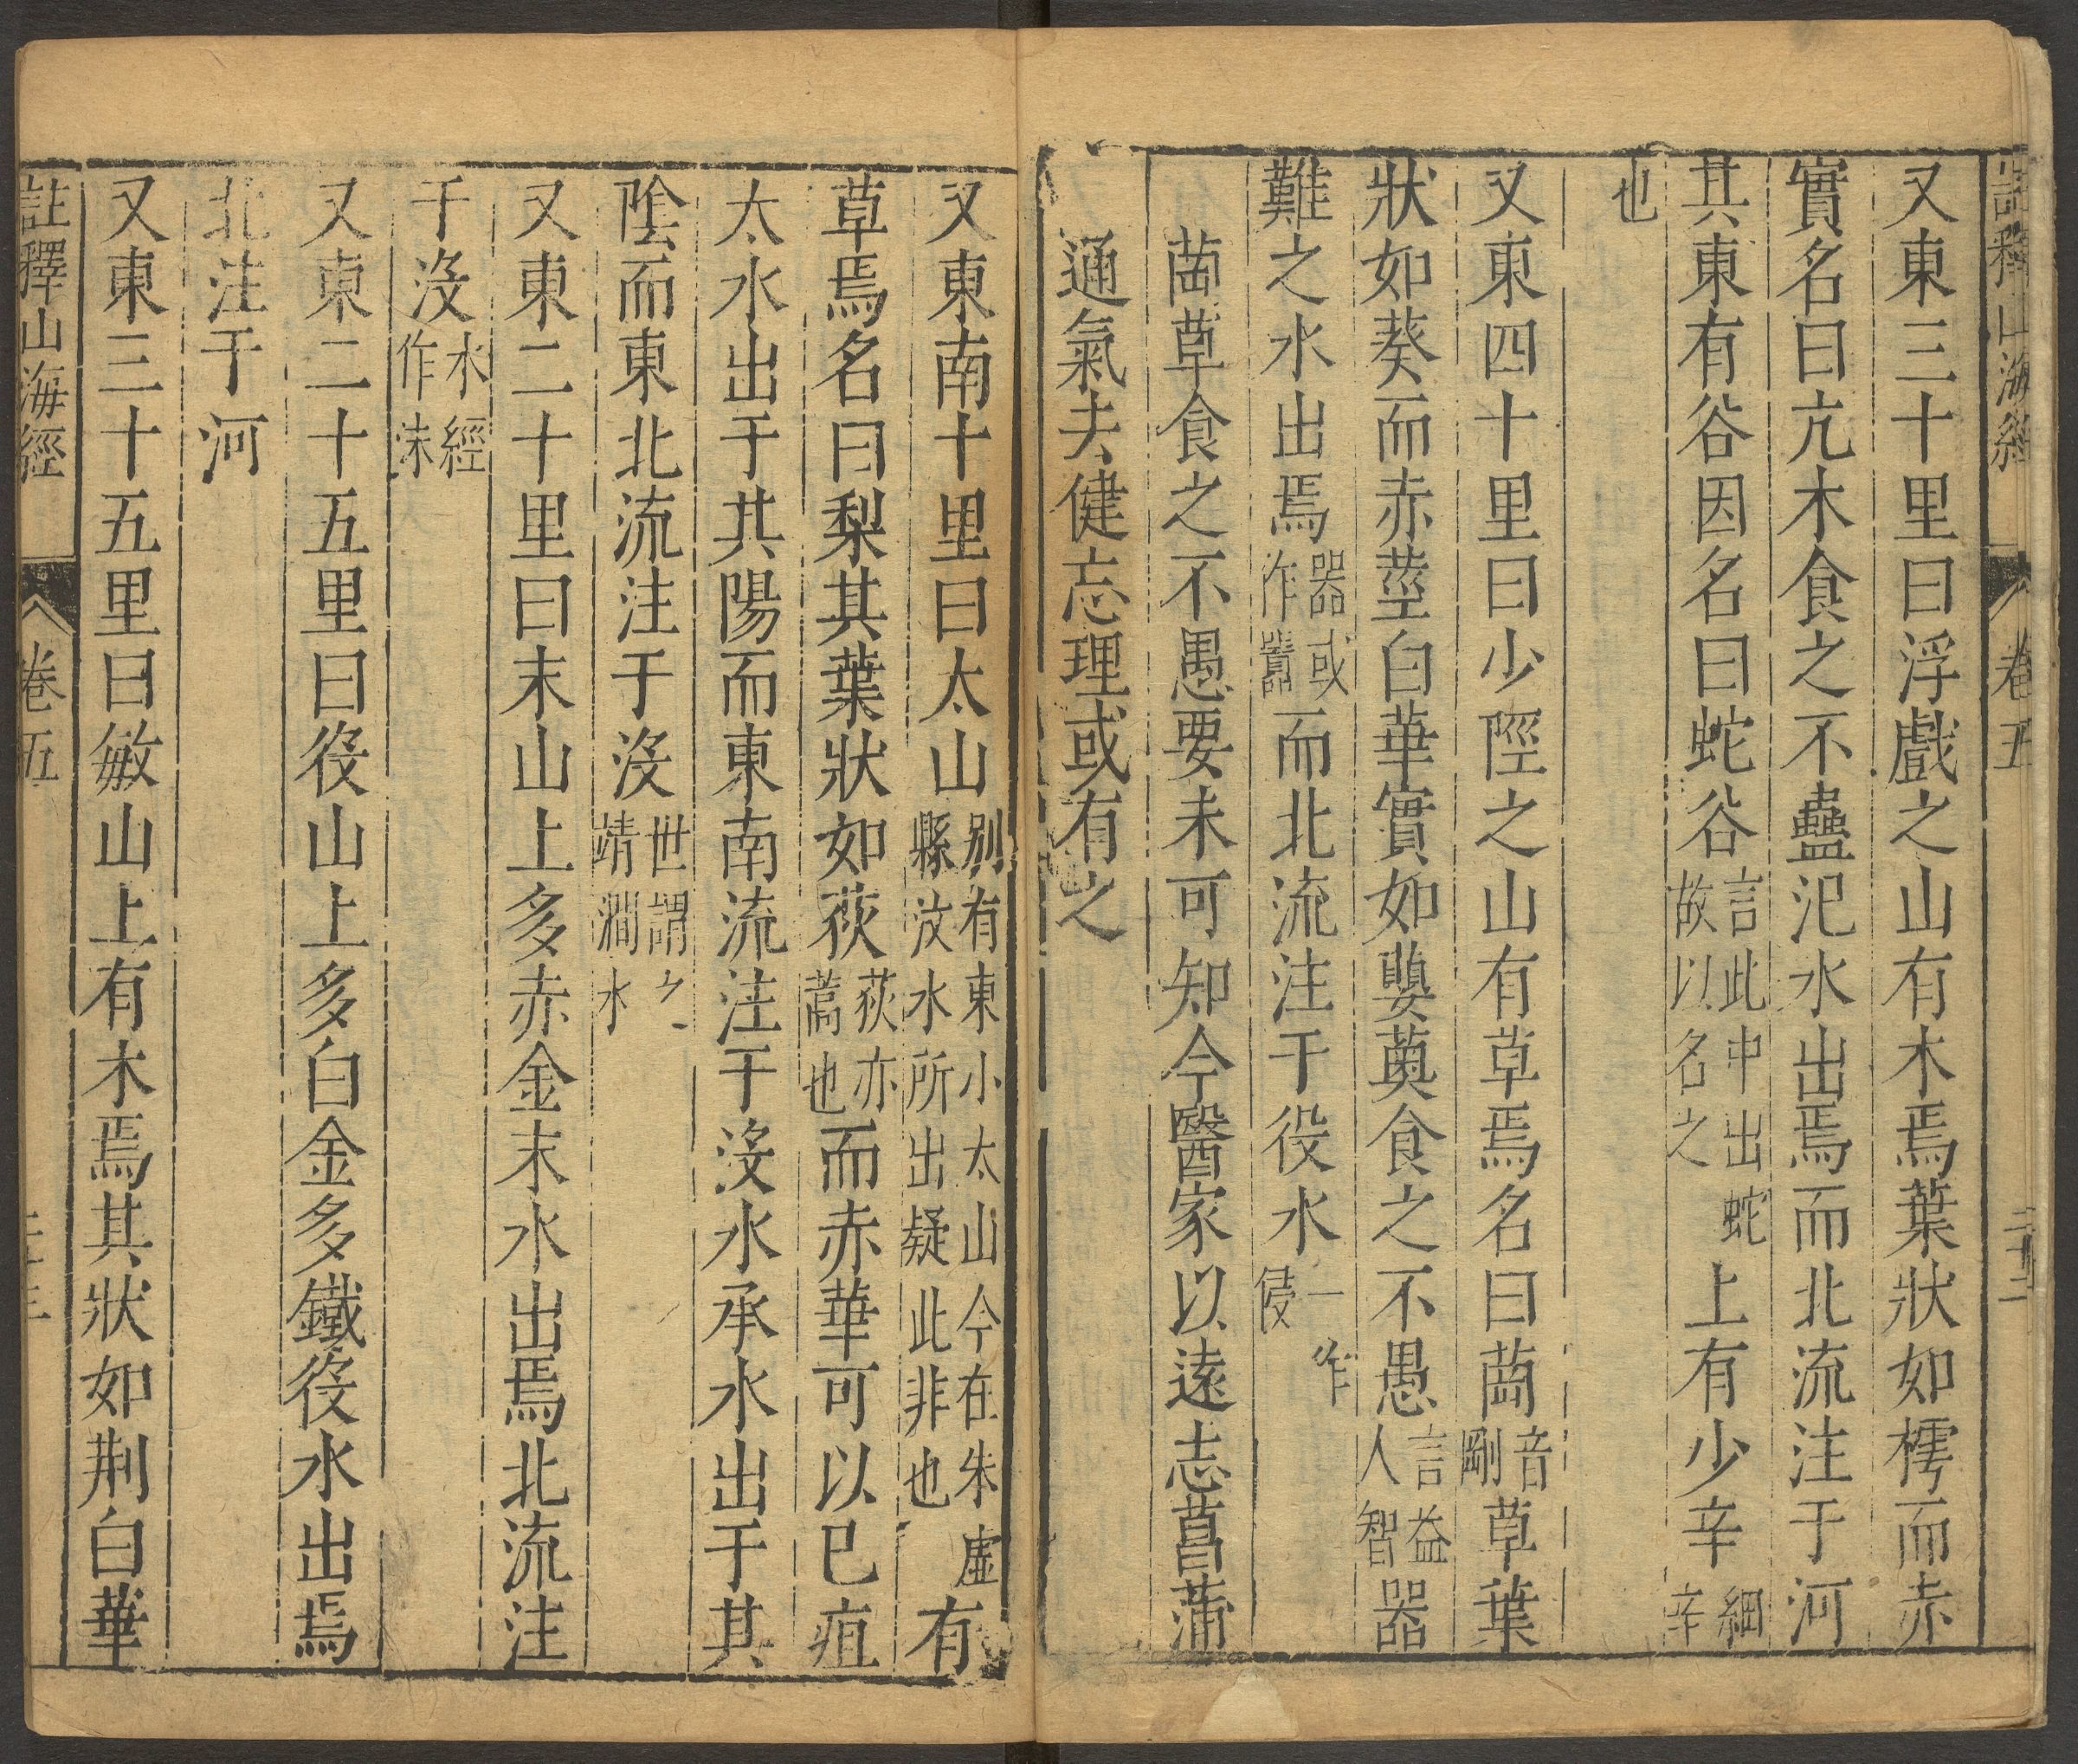 註釋山海經 卷五 二十二
又東三十里曰浮戲之山有木焉葉狀如樗而赤
實名曰亢木食之不蠱汜水出焉而北流注于河
其東有谷因名曰蛇谷言此中出蛇故以名之上有少辛細辛
也
又東四十里曰少陘之山有草焉名曰䔉音剛草葉
狀如葵而赤莖白華實如蘡薁食之不愚言益人智器
難之水出焉器或作囂而北流注于役水一作侵
䔉草食之不愚要未可知今醫家以遠志菖蒲
通氣去健忘理或有之
又東南十里曰太山别有東小太山今在朱虛縣汶水所出疑此非也有
草焉名曰梨其葉狀如荻荻亦蒿也而赤華可以已疽
太水出于其陽而東南流注于沒水承水出于其
陰而東北流注于沒世謂之靖澗水
又東二十里曰末山上多赤金末水出焉北流注
于沒水經作沬
又東二十五里曰役山上多白金多鐵役水出焉
北注于河
又東三十五里曰敏山上有木焉其狀如荆白華
註釋山海經 卷五